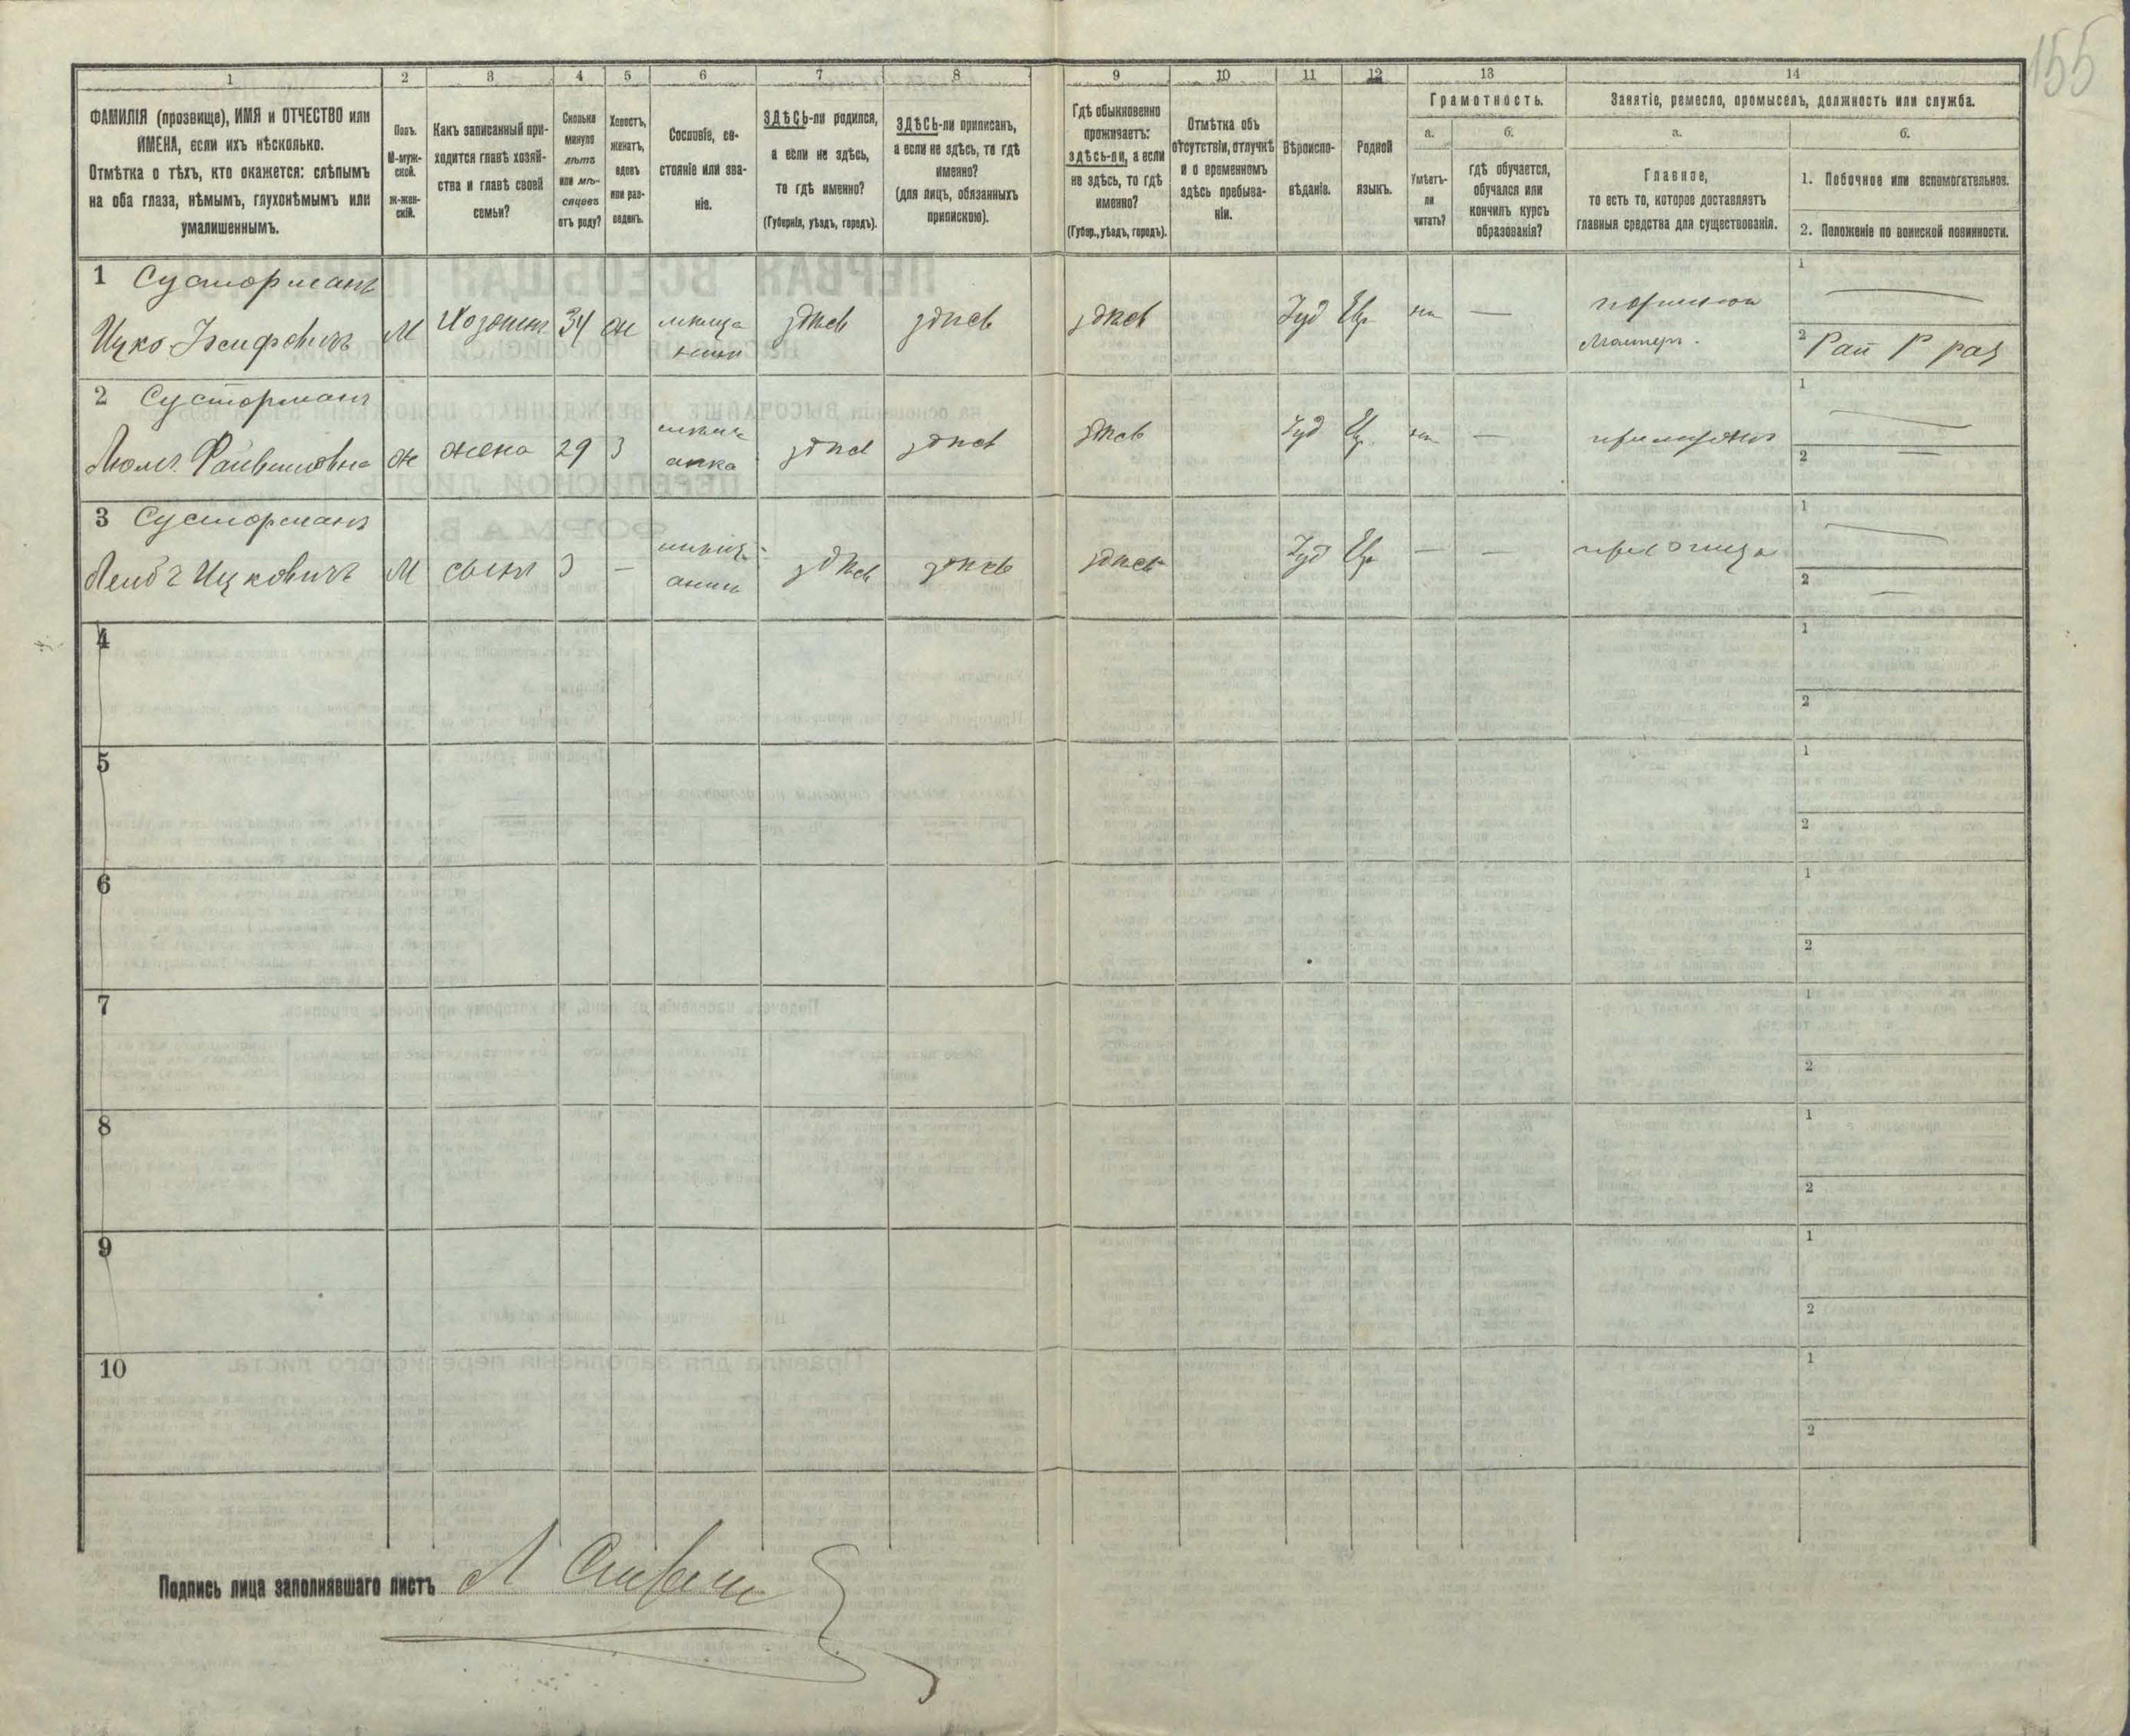 155
1
2
3
4
5
6
7
8
9
10
11
12
13
14
ФАМИЛІЯ (прозвище), ИМЯ и ОТЧЕСТВО или
ИМЕНА, если ихъ нѣсколько.
Отмѣтка о тѣхъ, кто окажется: слѣпымъ
на оба глаза, нѣмымъ, глухонѣмымъ или
умалишеннымъ.
Полъ.
М-муж-
ской.
Ж-жен-
скій.
Какъ записанный при-
ходится главѣ хозяй-
ства и главѣ своей
семьи?
Сколько
минуло
лѣтъ
или мѣ-
сяцевъ
отъ роду?
Холостъ,
женатъ,
вдовъ
или раз-
веденъ.
Сословіе, со-
стояніе или зва-
ніе.
ЗДѢСЬ-ли родился,
а если не здѣсь,
то гдѣ именно?
(Губернія, уѣздъ, городъ).
ЗДѢСЬ-ли приписанъ,
а если не здѣсь, то гдѣ
именно?
(для лицъ, обязанныхъ
припискою).
Гдѣ обыкновенно
проживаетъ:
здѣсь-ли, а если
не здѣсь, то гдѣ
именно?
(Губер., уѣздъ, городъ).
Отмѣтка объ
отсутствіи, отлучкѣ
и о временномъ
здѣсь пребыва-
ніи.
Вѣроиспо-
вѣданіе.
Родной
языкъ.
Грамотность.
а.
Умѣетъ-
ли
читать?
б.
гдѣ обучается,
обучался или
кончилъ курсъ
образованія?
Занятіе, ремесло, промыселъ, должность или служба.
а.
Главное,
то есть то, которое доставляетъ
главныя средства для существованія.
б.
1. Побочное или вспомогательное.
2. Положеніе по воинской повинности.
1 Сусторманъ
Ицко Іосифовичъ М Хозяинъ 34 ж здѣсь здѣсь здѣсь Іуд Евр
1
2
2 Сусторманъ
Файвишовна ж жена 29 З здѣсь здѣсь здѣсь Іуд Евр — при мужѣ
анка
1
2
3 Сусторманъ
Лейбъ Ицковичъ М сынъ 3 — здѣсь здѣсь здѣсь Іуд Евр — — при отцѣ
анинъ
1
2
4
1
2
5
1
2
6
1
2
7
1
2
8
1
2
9
1
2
10
1
2
Подпись лица заполнявшаго листъ